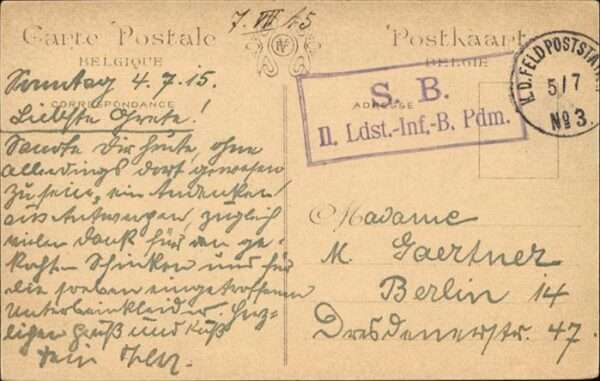 7. VII 15
Carte Postale
BELGIQUE
CORRESPONDANCE
Postkaart
BELGIË
ADRESSE
S. B.
II. Ldst.-Inf.-B. Pdm.
K.D. FELDPOSTSTAT
5/7
No 3.
Sonntag 4.7.15.
Liebste Grete!
Sandte Dir heute, ohne
allerdings dort gewesen
zu sein, ein Andenken
aus Antwerpen, zugleich
vielen Dank für den ge-
kochten Schinken und für
die soeben eingetroffenen
Unterbeinkleider. Herz-
lichen Gruß und Kuß
Dein
Madame
M. Gaertner
Berlin 14
Dresdenerstr. 47.